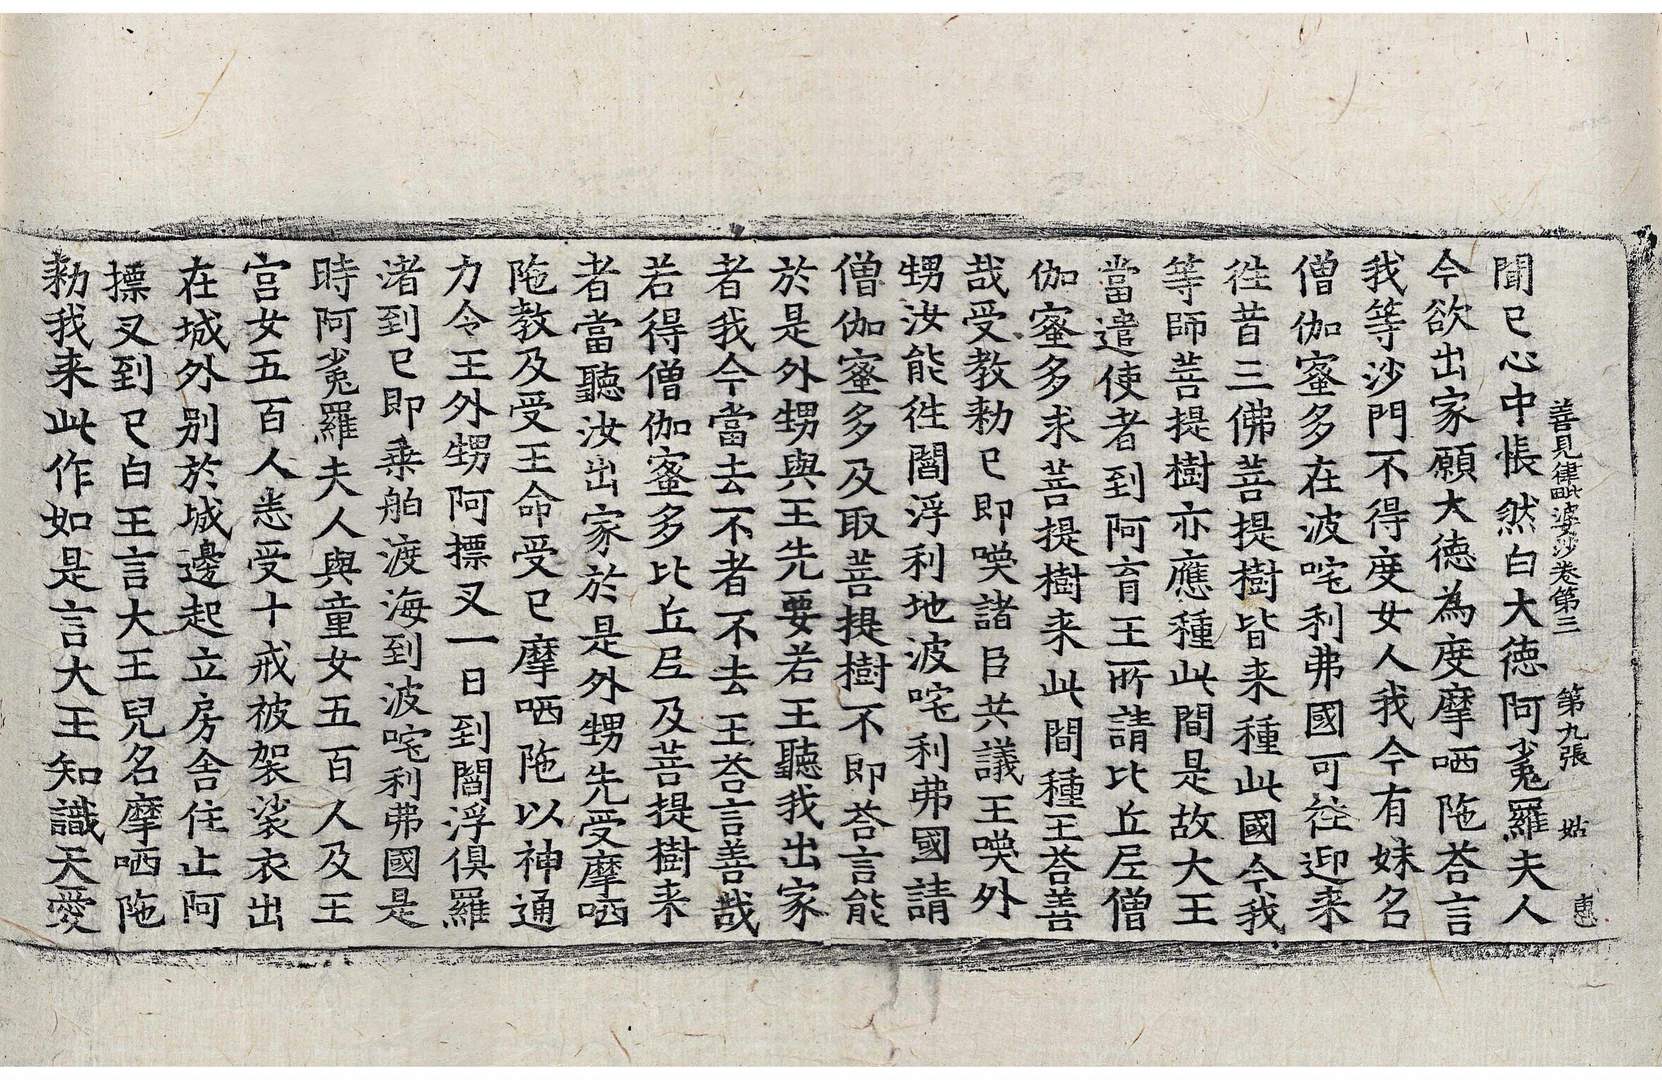 善見律毗婆沙卷第三 第九張 姑 惠
聞已心中悵然白大德阿㝹羅夫人
今欲出家願大德為度摩哂陁荅言
我等沙門不得度女人我今有妹名
僧伽蜜多在波咤利弗國可往迎来
徃昔三佛菩提樹皆来種此國今我
等師菩提樹亦應種此間是故大王
當遣使者到阿育王所請比丘尼僧
伽蜜多求菩提樹来此間種王荅善
哉受教勑已即喚諸臣共議王喚外
甥汝能徃閻浮利地波咤利弗國請
僧伽蜜多及取菩提樹不即荅言能
於是外甥與王先要若王聽我出家
者我今當去不者不去王荅言善哉
若得僧伽蜜多比丘尼及菩提樹来
者當聽汝出家於是外甥先受摩哂
陁教及受王命受已摩哂陁以神通
力令王外甥阿摽叉一日到閻浮俱羅
渚到已即乗舶渡海到波咤利弗國是
時阿㝹羅夫人與童女五百人及王
宮女五百人悉受十戒被袈裟衣出
在城外别於城邊起立房舍住止阿
摽叉到已白王言大王兒名摩哂陁
勑我来此作如是言大王知識天愛